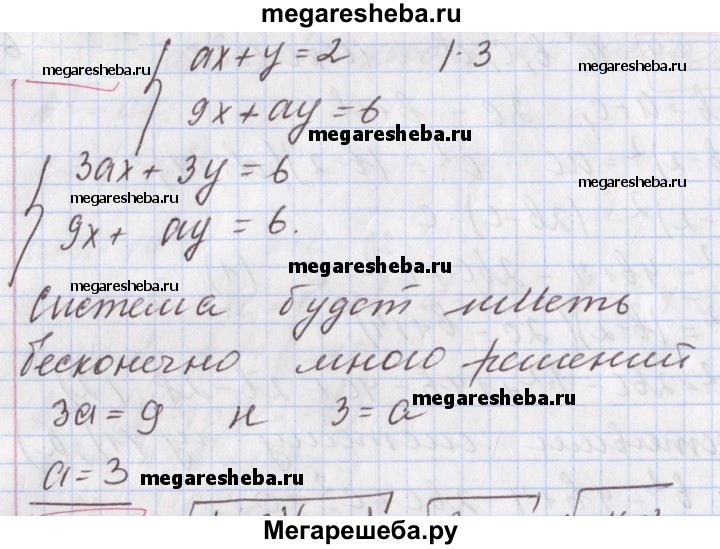 megaresheba.ru
ax + y = 2 | · 3
megaresheba.ru
megaresheba.ru
9x + ay = 6
megaresheba.ru
3ax + 3y = 6
megaresheba.ru
megaresheba.ru
9x + ay = 6.
megaresheba.ru
Система будет иметь
бесконечно много решений
3a = 9 и 3 = a
megaresheba.ru
a = 3
megaresheba.ru
megaresheba.ru
Мегарешеба.ру